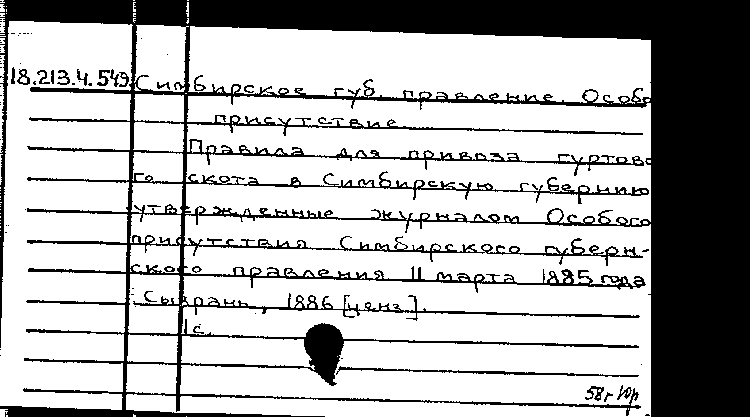 18.213.4.549. Симбирское губ. правление. Особо
присутствие
Правила для привоза гуртово
го скота в Симбирскую губернию
утвержденные журналом Особого
присутствия Симбирского губерн-
ского правления 11 марта 1885 года
Сызрань, 1886 [ценз].
1 с.
58г Юр